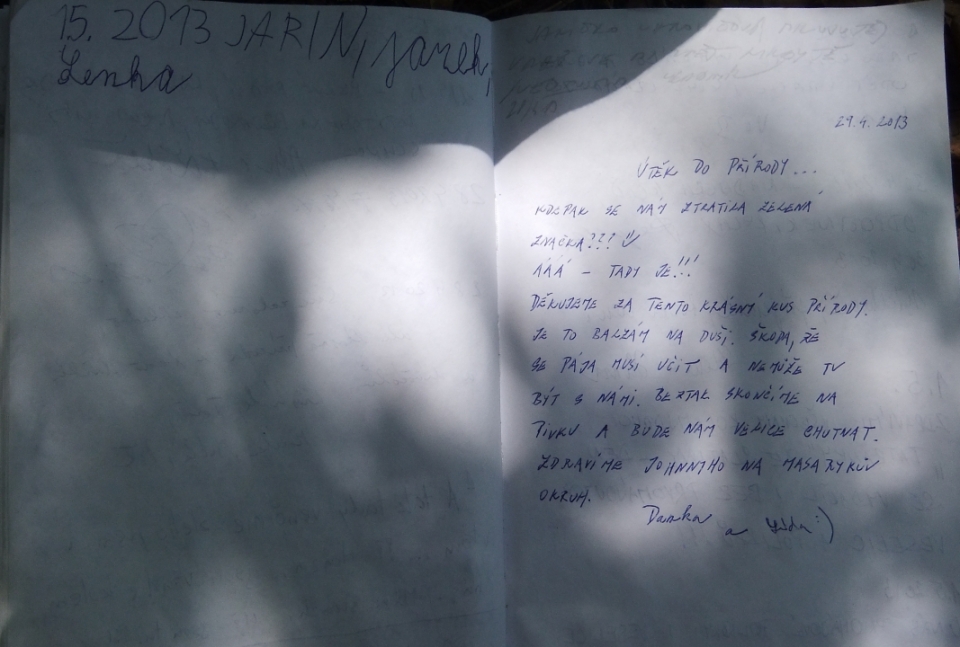 15. 2013 JARIN, Jarek,
Lenka
29.4. 2013
ÚTĚK DO PŘÍRODY...
KDEPAK SE NÁM ZTRATILA ZELENÁ
ZNAČKA???
ÁÁÁ - TADY JE!!!
DĚKUJEME ZA TENTO KRÁSNÝ KUS PŘÍRODY.
JE TO BALZÁM NA DUŠI. ŠKODA, ŽE
SE PÁJA MUSÍ UČIT A NEMŮŽE TU
BÝT S NÁMI. BEZTAK SKONČÍME NA
PIVKU A BUDE NÁM VELICE CHUTNAT.
ZDRAVÍME JOHNNYHO NA MASARYKŮV
OKRUH.
Danka
a Lída :)